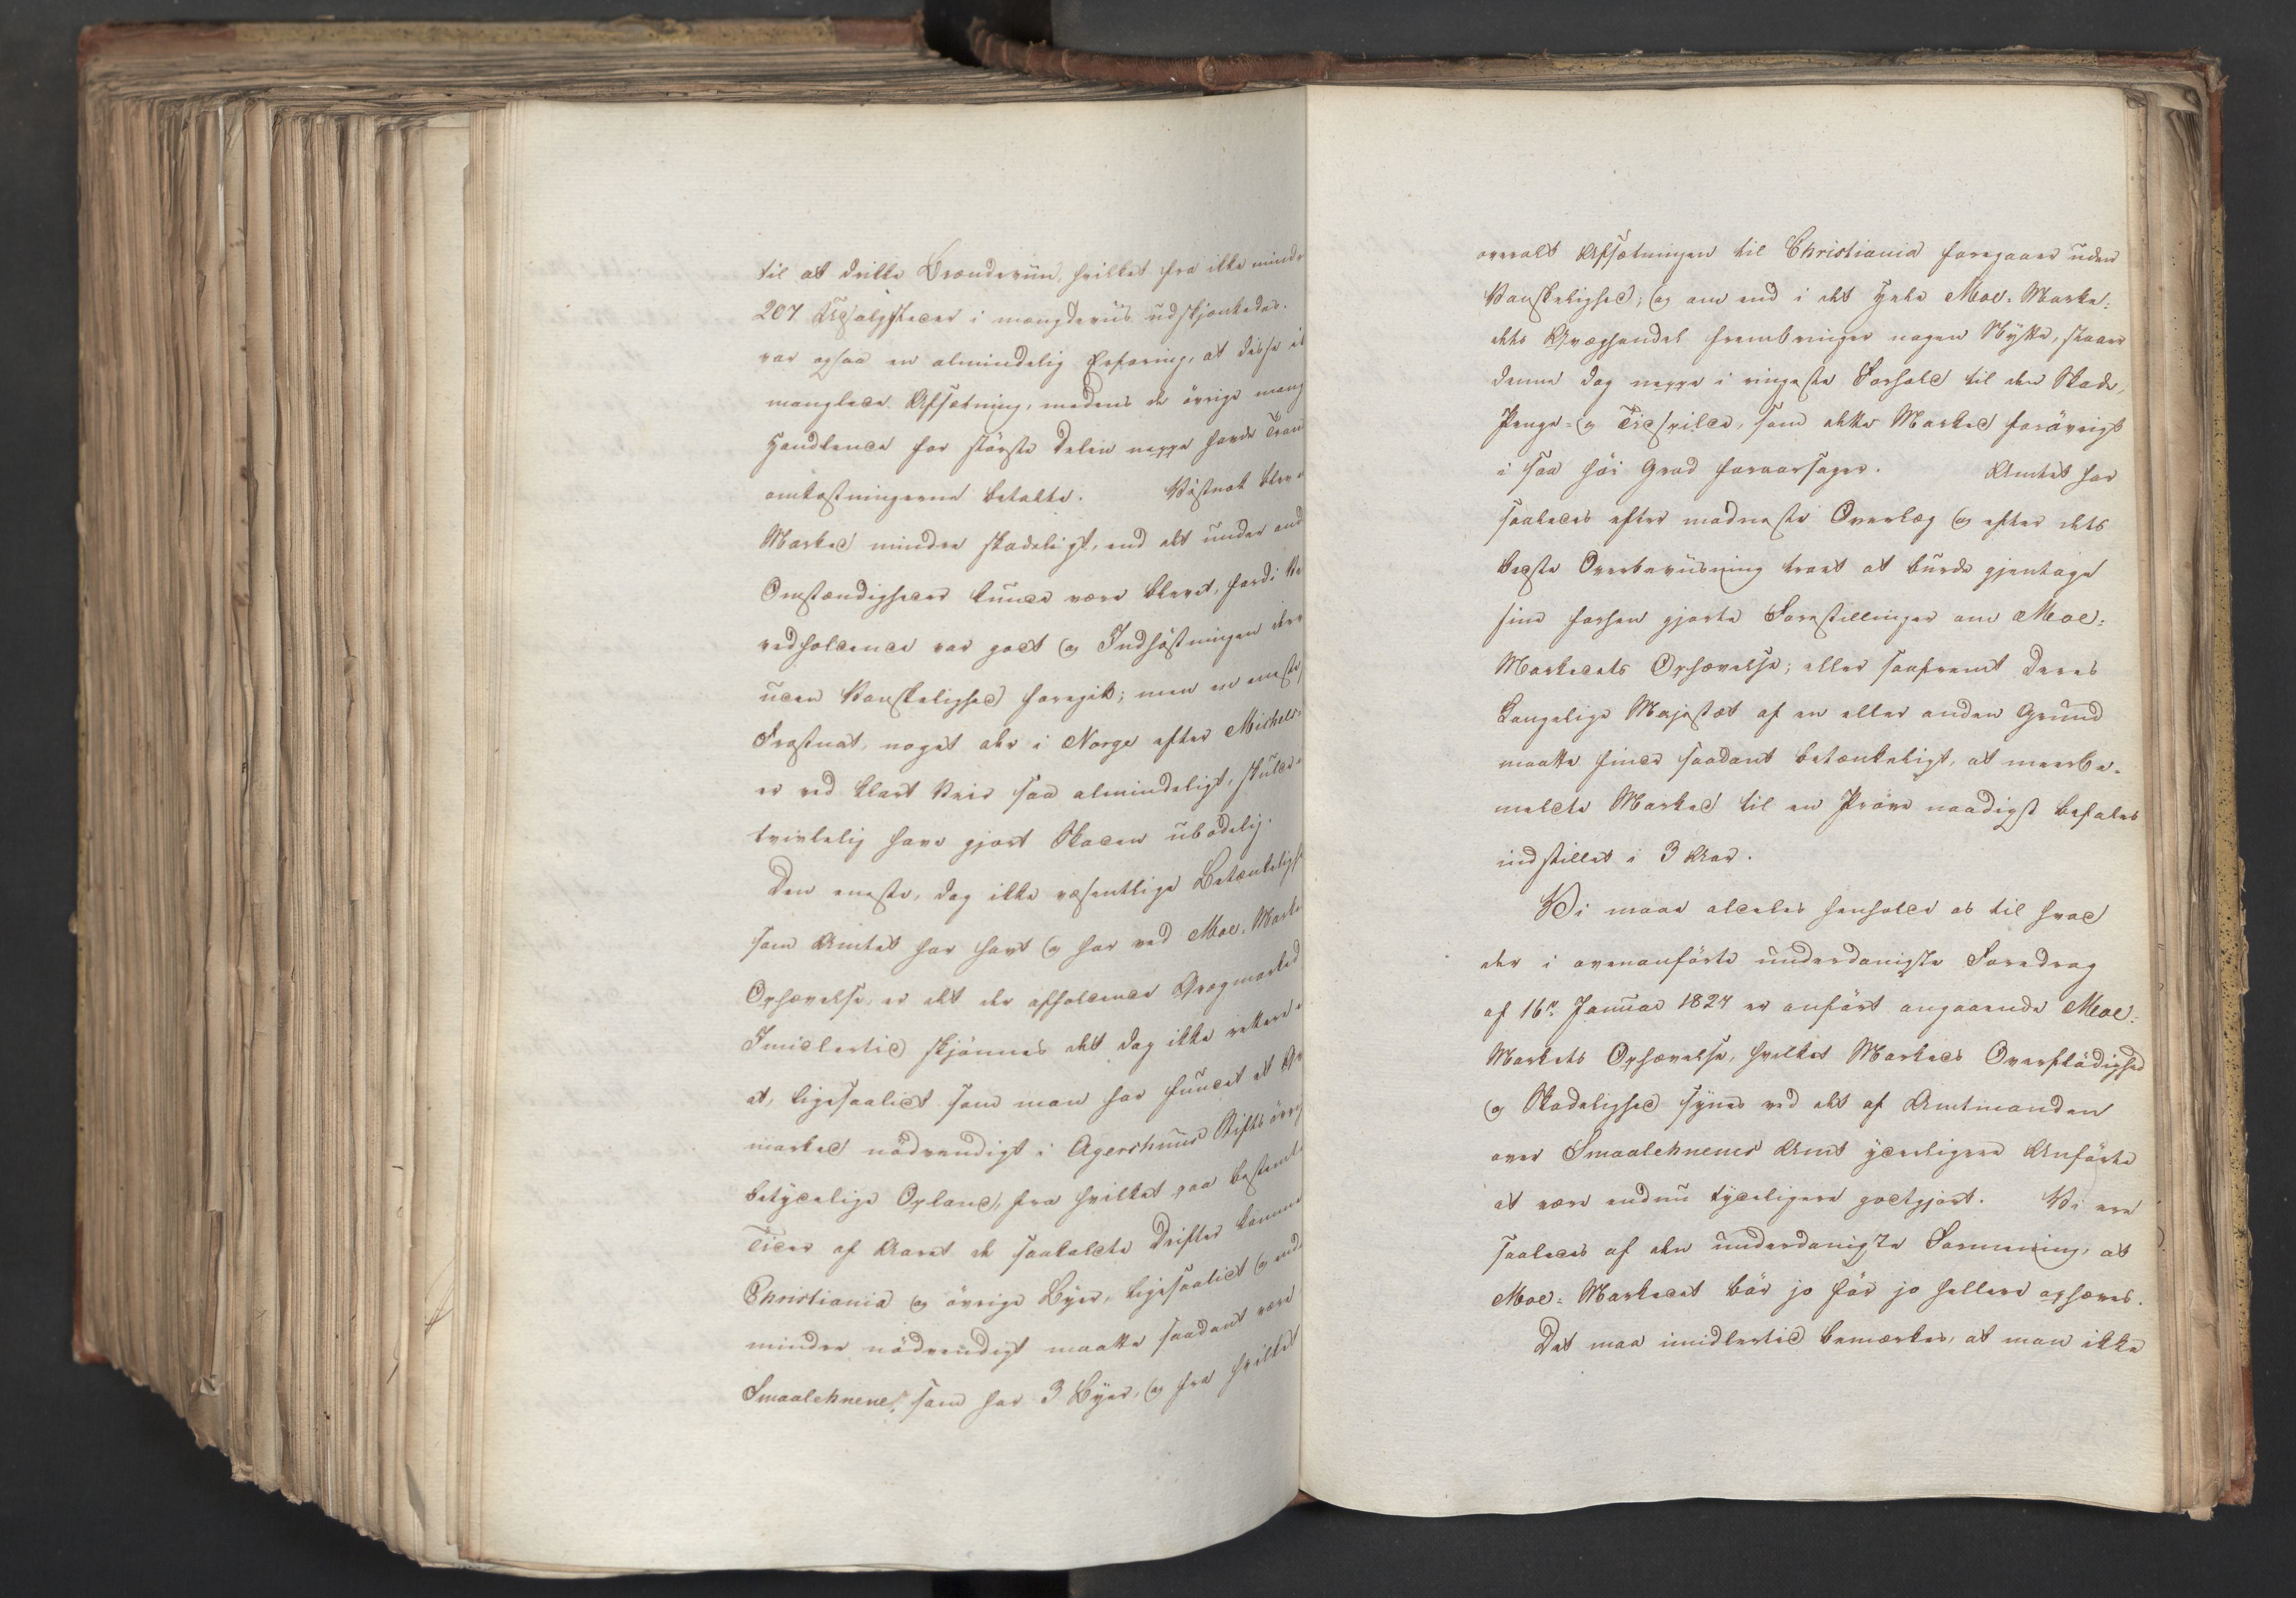 til at drikke Brændeviin, hvilket fra ikke mindr
207 Udsalgsteder i mængdeviis udskjænkedes.
var ogsaa en almindelig Erfaring, at disse et
manglede Afsætning, medens de övrige mang
Handlende for störste Delen neppe havde Tran
omkostningerne betalte. Vistnok blev e
Marked mindre skadeligt, end det under and
Omstændigheder kunde være blevet, fordi Ve
vedholdende var godt og Indhöstningen derv
uden Vanskelighed foregik; men en eneste
Frostnat, noget der i Norge efter Michels-
er ved klart Veir saa almindeligt, skulde u
tvivlelig have gjort Skaden ubodelig.
Den eneste, dog ikke væsentlige Betænkeligh
som Amtet har havt og har ved Moe-Marke
Ophævelse, er det der afholdende Qvægmarked
Imidlertid skjönnes det dog ikke rettere e
at, ligesaalidt som man har fundet et Qv
marked nödvendigt i Agershuus Stifts övrig
betydelige Opland, fra hvilket paa bestemte
Tider af Aaret de saakaldte Drifter komme
Christiania og övrige Byer, ligesaalidt og end
mindre nödvendigt maatte saadant være
Smaalehnene, som har 3 Byer, og fra hvilket
overalt Afsætningen til Christiania foregaaer uden
Vanskelighed; og om end i det Hele Moe-Marke-
dets Qvæghandel frembringer nogen Nytte, staaer
denne dog neppe i ringeste Forhold til den Skade,
Penge- og Tidsspilde, som dette Marked forövrigt
i saa höi Grad foraarsager. Amtet har
saaledes efter modneste Overlæg og efter dets
bedste Overbeviisning troet at burde gjentage
sine forhen gjorte Forestillinger om Moe-
Markedets Ophævelse; eller saafremt Deres
Kongelige Majestæt af en eller anden Grund
maatte finde saadant betænkeligt, at meerbe-
meldte Marked til en Pröve naadigst befales
indstillet i 3 Aar.
Vi maae aldeles henholde os til hvad
der i ovenanförte underdanigste Foredrag
af 16de Januar 1824 er anfört angaaende Moe-
Markets Ophævelse, hvilket Markeds Overflödighed
og Skadelighed synes ved det af Amtmanden
over Smaalehnenes Amt yderligere Anförte
at være endnu tydeligere godtgjort. Vi ere
saaledes af den underdanigste Formening, at
Moe-Markedet bör jo för jo hellere ophæves.
Det maa imidlertid bemærkes, at man ikke